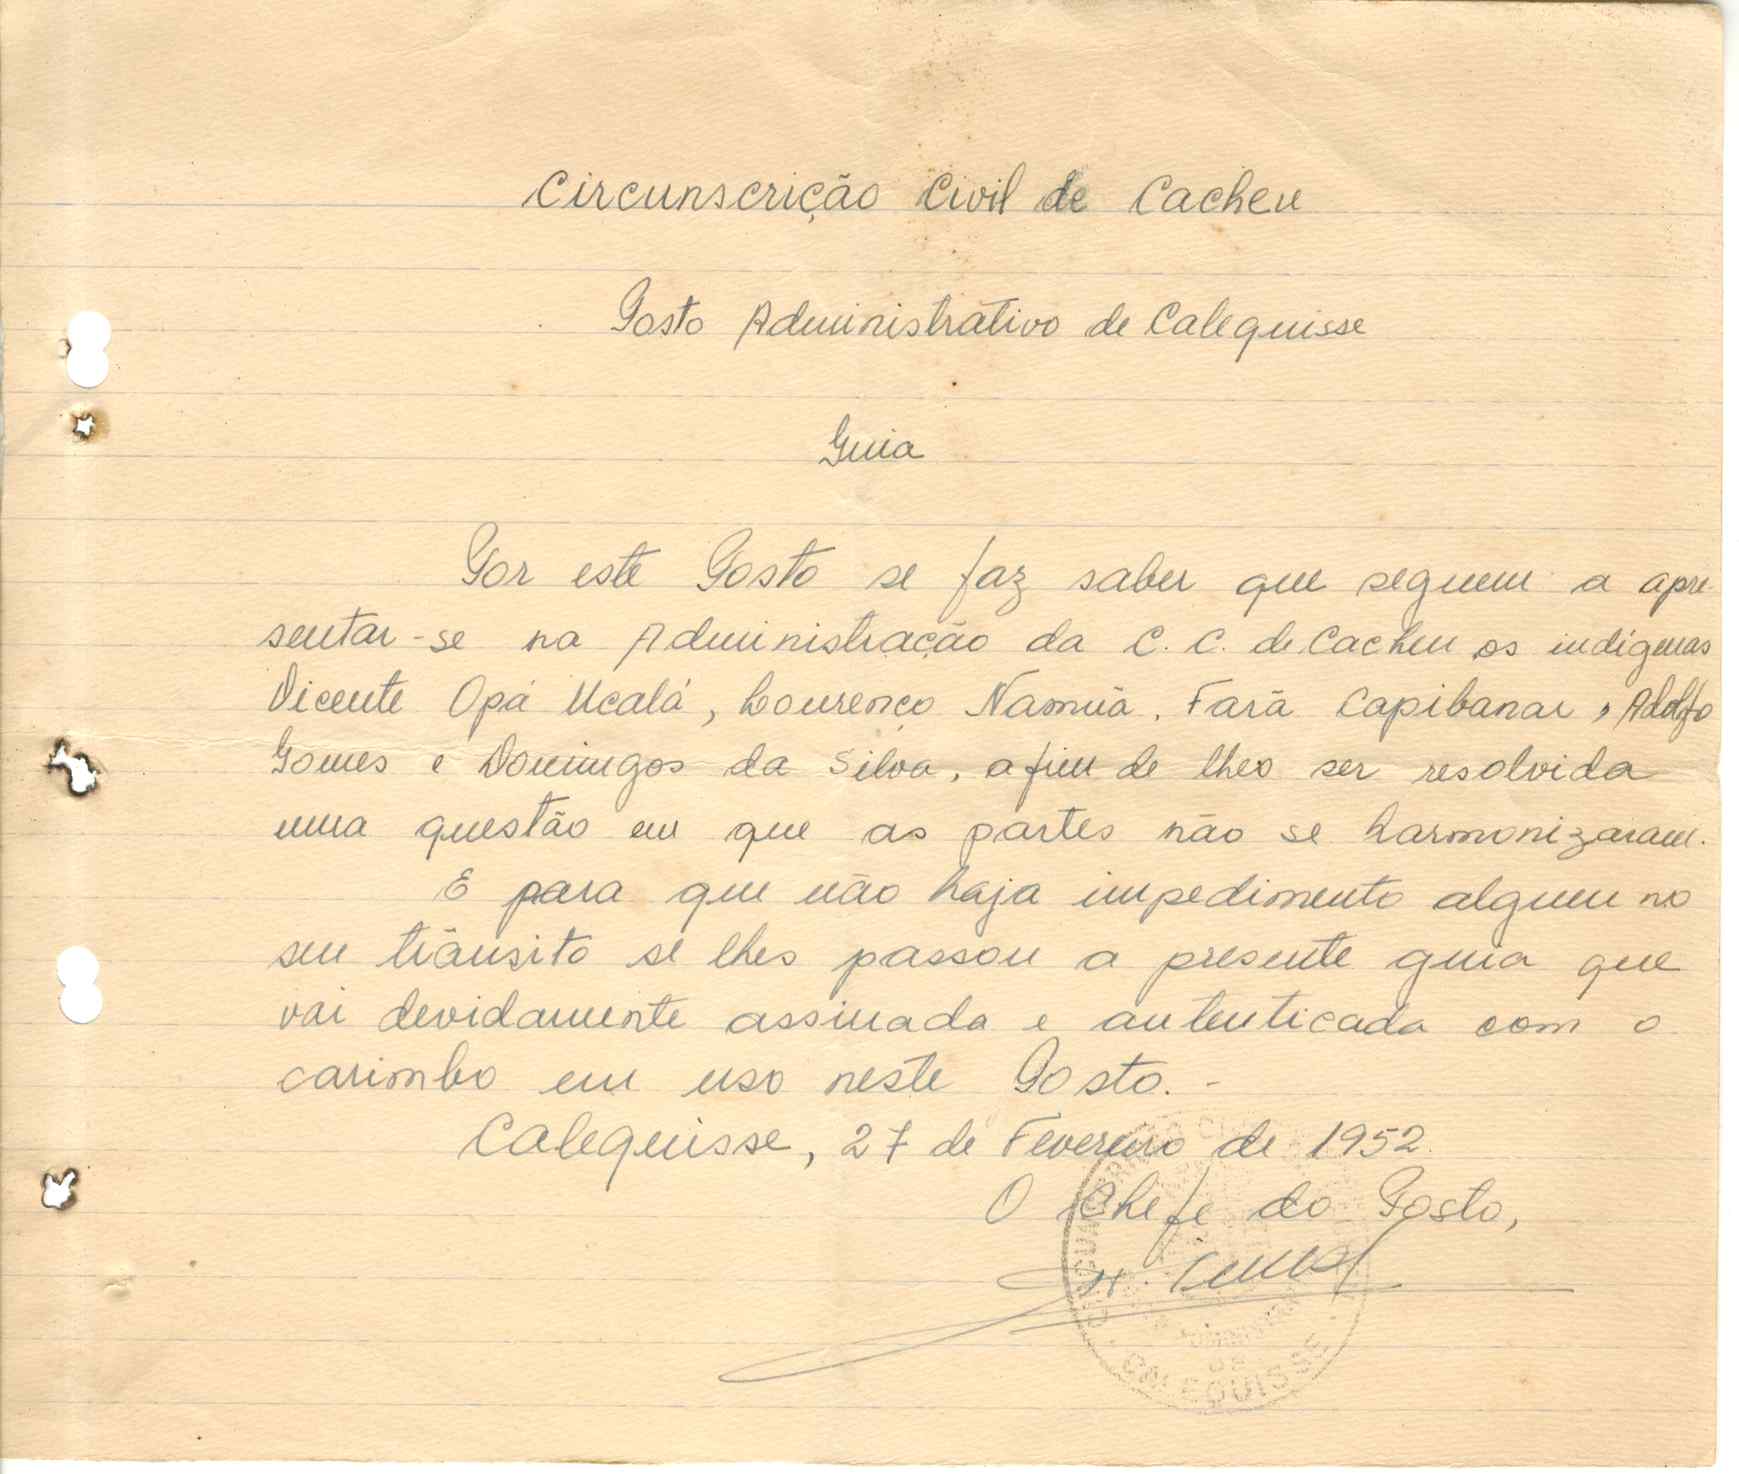 Circunscrição Civil de Cacheu
Posto Administrativo de Calequisse
Guia
Por este Posto se faz saber que seguem a apre-
sentar-se na Administração da C. C. de Cacheu os indígenas
Vicente Opá Ucalá, Lourenço Namúa, Fará Capibanar, Adolfo
Gomes e Domingos da Silva, afim de lhes ser resolvida
uma questão em que as partes não se harmonizaram.
E para que não haja impedimento algum no
seu trânsito se lhes passou a presente guia que
vai devidamente assinada e autenticada com o
carimbo em uso neste Posto.-
Calequisse, 27 de Fevereiro de 1952.
O Chefe do Posto,
CALEQUISSE